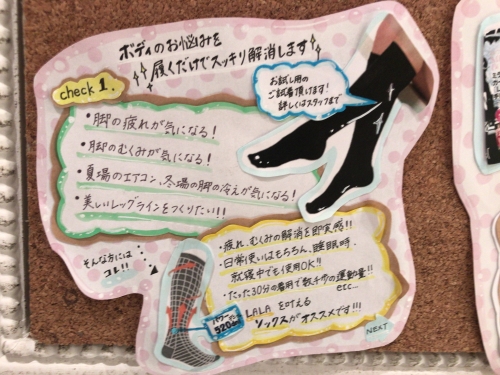 ボディのお悩みを
履くだけでスッキリ解消します
check 1.
お試し用の
ご試着頂けます!
詳しくはスタッフまで
・脚の疲れが気になる!
・脚のむくみが気になる!
・夏場のエアコン、冬場の脚の冷えが気になる!
・美しいレッグラインをつくりたい!!
そんな方には
コレ!!
・疲れ、むくみの解消を即実感!!
・日常使いはもちろん、睡眠時、
就寝中でも使用OK!!
・たった30分の着用で数千歩の運動量!!
etc...
LALA を叶える
ソックスがオススメです!!!
パワー
520
NEXT